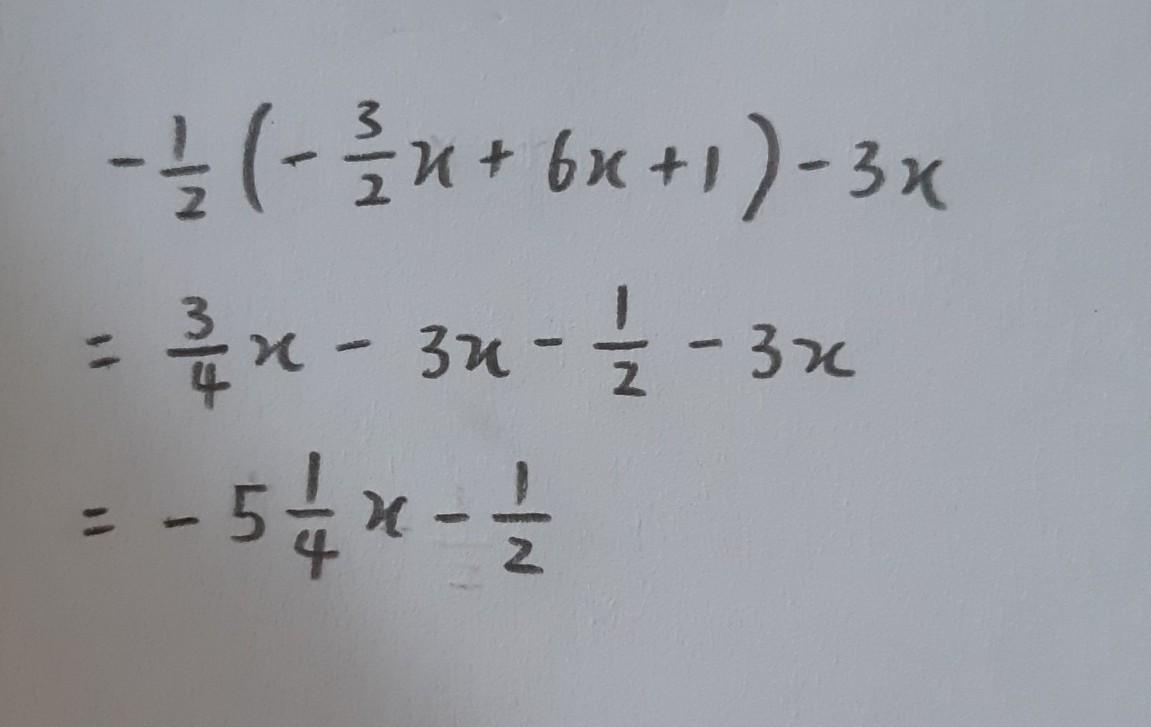 -1/2 (-3/2 x + 6x + 1) - 3x
= 3/4 x - 3x - 1/2 - 3x
= -5 1/4 x - 1/2